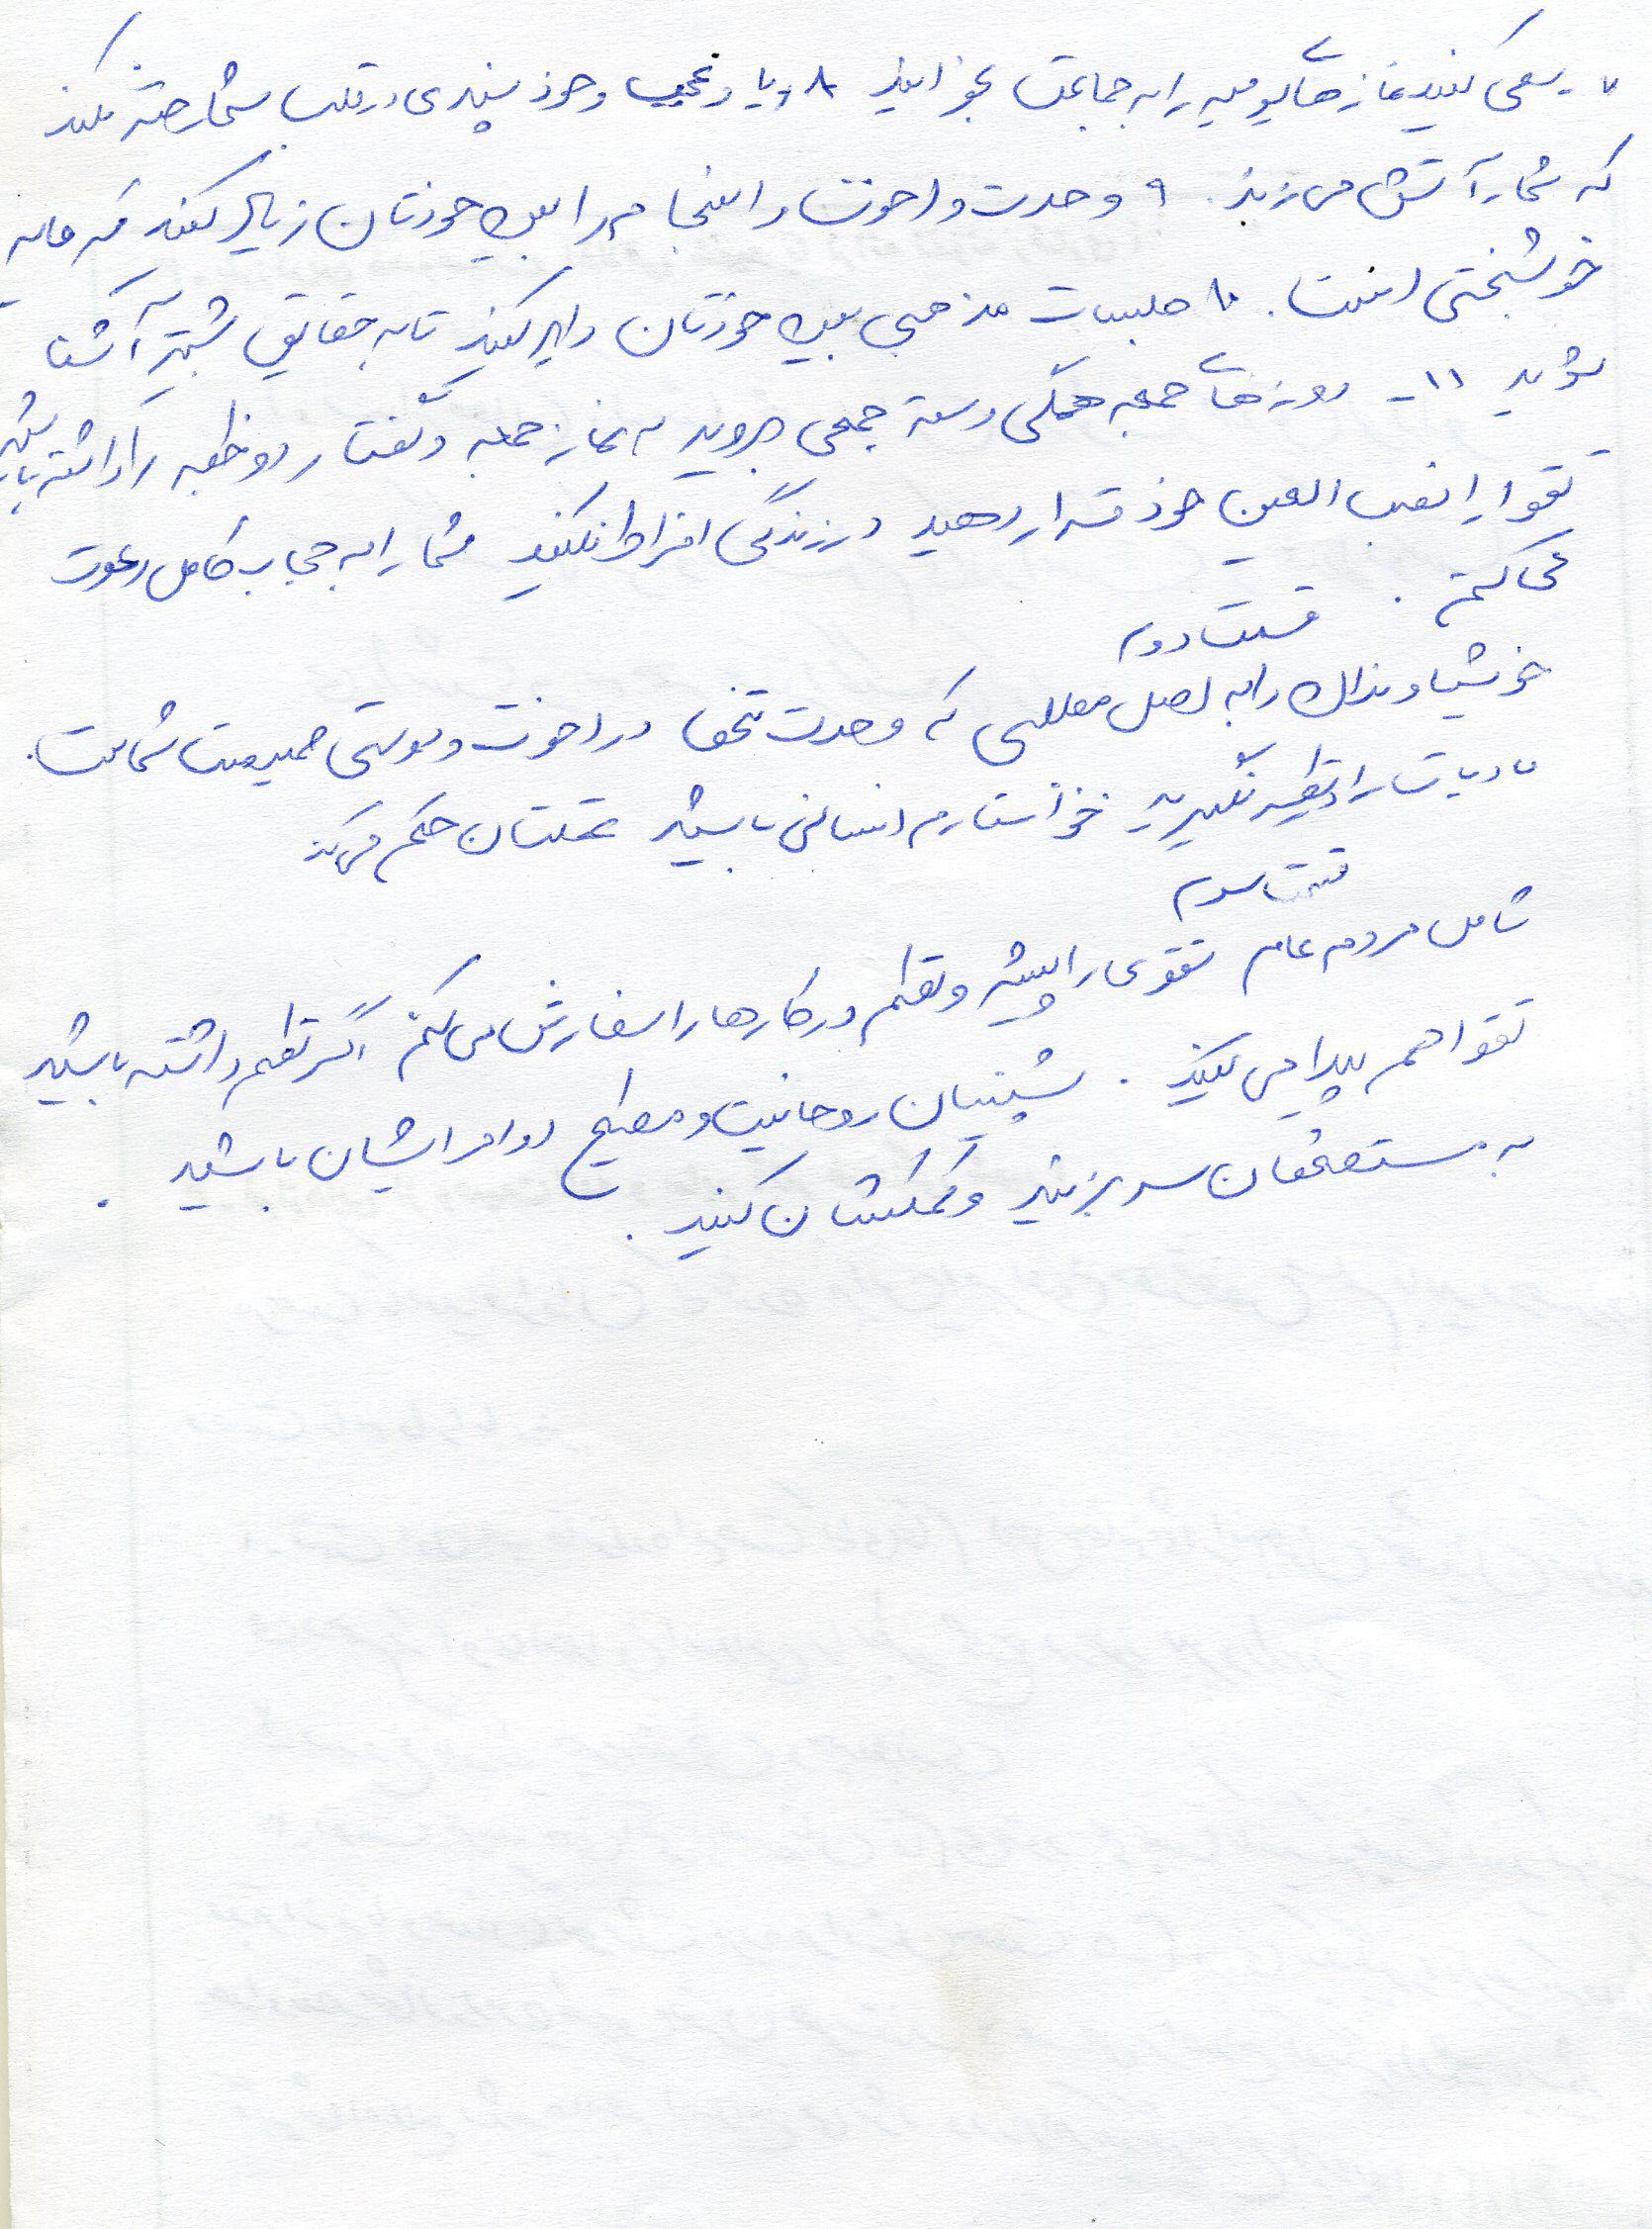 ۷- سعی کنید نمازهای یومیه را به جماعت بخوانید ۸ و یا و عجب و خودپسندی در قلب شما رخنه نکند
که شما را آتش می زند. ۹ وحدت و اخوت و انسجام را بین خودتان زیاد کنید که مایه
خوشبختی است. ۱۰ جلسات مذهبی بین خودتان دایر کنید تا به حقایق بیشتر آشنا
شوید ۱۱- روزهای جمعه همگی دسته جمعی بروید به نماز جمعه و گفتار دو خطبه را داشته باشید
تقوا را نصب العین خود قرار دهید در زندگی افراط نکنید شما را به حجاب کامل دعوت
می کنم. قسمت دوم
خویشاوندان را به اصل مطلبی که وحدت در اخوت و دوستی صمیمیت شماست.
مادیات را در نظر نگیرید خواستارم انسانی باشید عقلتان حکم می کند
قسمت سوم
شامل مردم عام تقوی را پیشه و نظم در کارها را سفارش می کنم اگر نظم داشته باشید
تقوا هم پیدا می کنید. پشتیبان روحانیت و مطیع اوامر ایشان باشید.
به مستضعفان سر بزنید و کمکشان کنید.